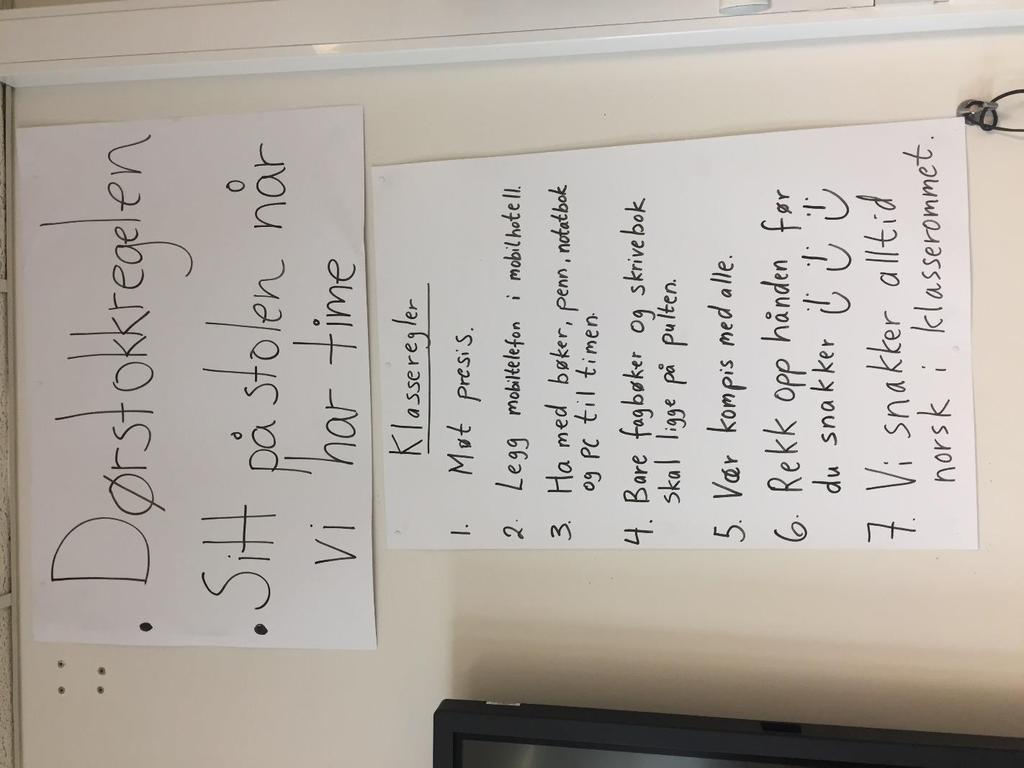 • Dørstokkregelen
• Sitt på stolen når
vi har time
Klasseregler
1. Møt presis.
2. Legg mobiltelefon i mobilhotell.
3. Ha med bøker, penn, notatbok
og PC til timen.
4. Bare fagbøker og skrivebok
skal ligge på pulten.
5. Vær kompis med alle.
6. Rekk opp hånden før
du snakker
7. Vi snakker alltid
norsk i klasserommet.